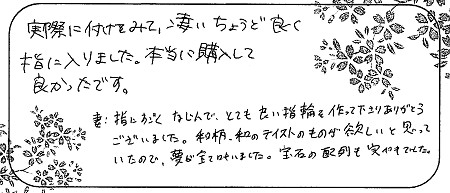 実際に付けてみて、凄いちょうど良く
指に入りました。本当に購入して
良かったです。
妻:指にすごくなじんで、とても良い指輪を作って下さりありがとう
ございました。和柄、和のテイストのものが欲しいと思って
いたので、夢が全て叶いました。宝石の配列も実やすでした。